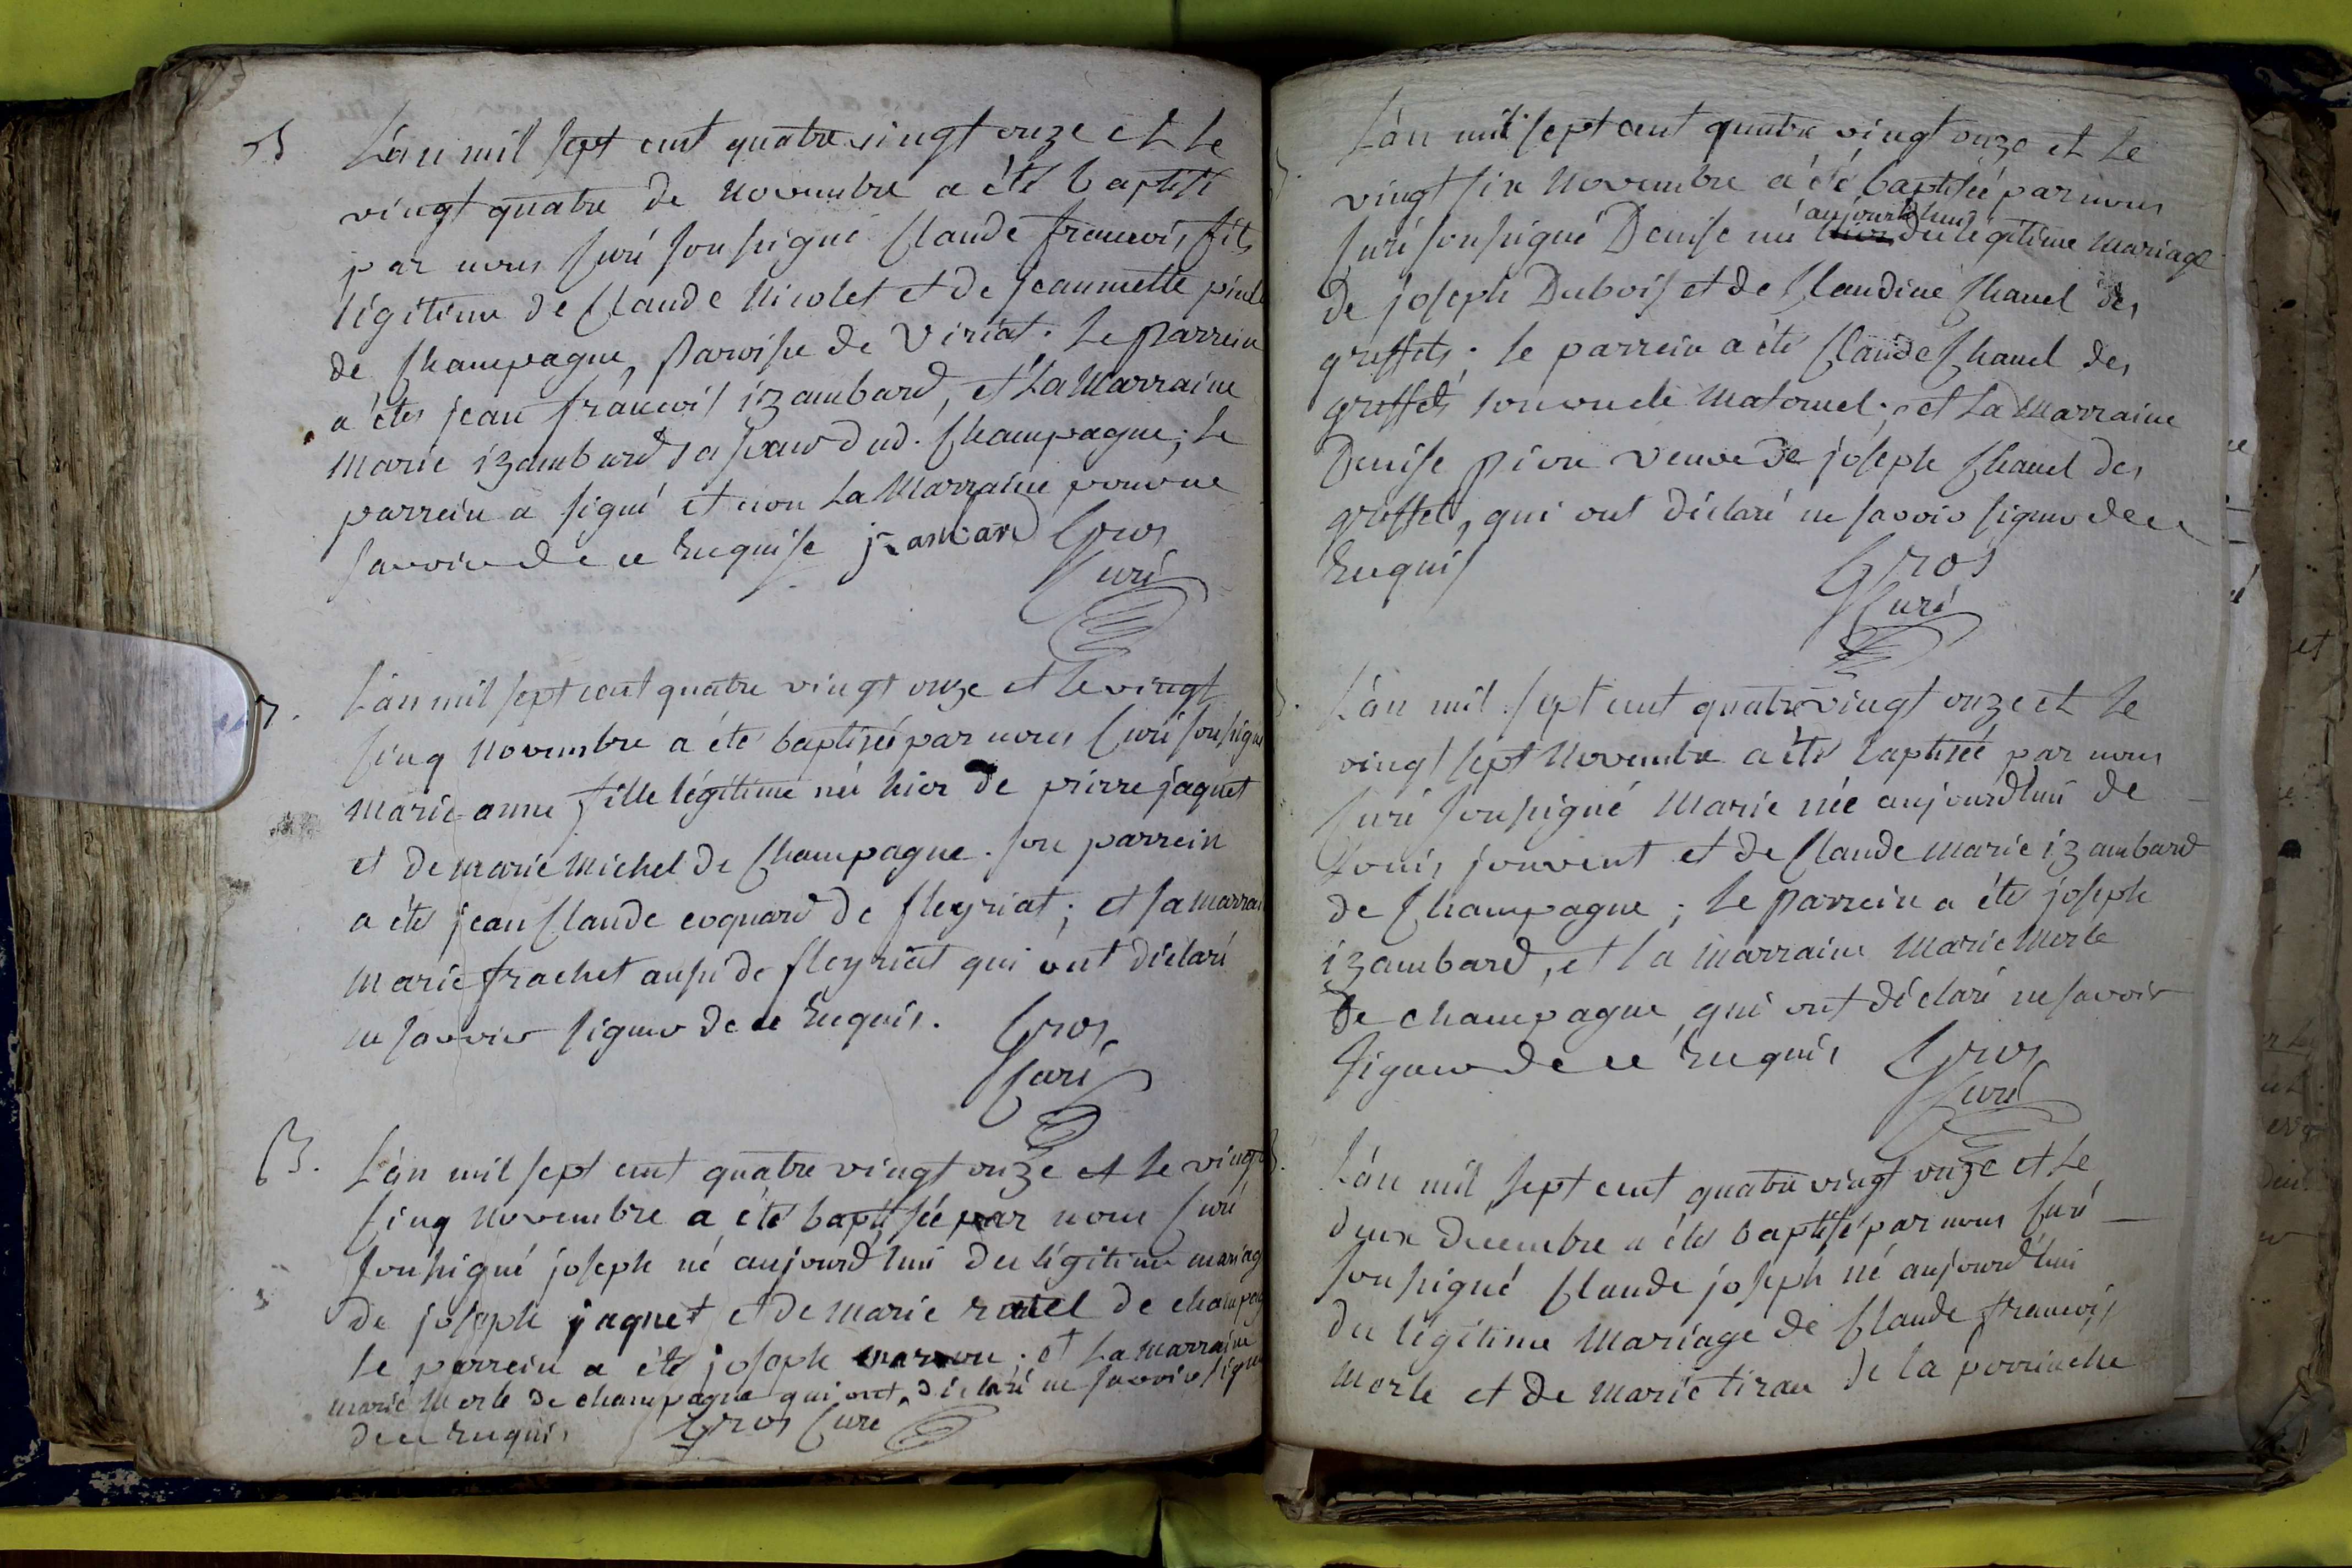 B
L'an mil sept cent quatre vingt onze et le
vingt quatre de Novembre a été baptisé
par nous Curé soussigné Claude françois fils
légitime de Claude Nicolet et de jeannette
de Champagne, Paroisse de Viriat. Le Parrein
a étés jean françois izambard, et La Marraine
Marie izambard sa sœur dud. Champagne; le
parrein a signé et non La Marraine pour ne
savoir de ce Enquise jzambard Gros
Curé
L'an mil sept cent quatre vingt onze et le vingt
Cinq Novembre a étés baptisée par nous Curé soussigné
Marie-anne fille légitime née hier de pierre jaquet
et de marie Michel de Champagne. son parrein
a étés jean Claude coquard de fleyriat; et sa marrai
Marie frachet aussi de fleyriat qui ont déclaré
ne savoir signer de ce Enquis. Gros
Curé
B. L'an mil sept cent quatre vingt onze et le vingt
Cinq Novembre a étés baptisée par nous Curé
soussigné joseph né aujourd'hui du légitime mariag
de joseph jaquet et de Marie ratel de champag
le parrein a étés joseph ; et La marraine
marie Merle de champagne qui ont déclaré ne savoir signer
de ce Enquis Gros Curé
L'an mil sept cent quatre vingt onze et Le
vingt six Novembre a été baptisée par nous
aujourd'hui
Curé soussigné Denise née hier du légitime Mariage
de joseph Dubois et de Claudine Chanel des
greffets; le parrein a étés Claude Chanel des
greffets son oncle Maternel; et La Marraine
Denise veuve de joseph Chanel des
greffets, qui ont déclaré ne savoir signer de ce
Enquis Gros
Curé
L'an mil sept cent quatre vingt onze et Le
vingt sept Novembre a étés baptisée par nous
Curé soussigné Marie née aujourd'hui de
Louis jouvent et de Claude Marie izambard
de Champagne; Le Parrein a étés joseph
izambard, et La Marraine Marie Merle
de champagne, qui ont déclaré ne savoir
signer de ce Enquis Gros
Curé
L'an mil sept cent quatre vingt onze et Le
deux decembre a étés baptisé par nous Curé
soussigné Claude joseph né aujourd'hui
du légitime Mariage de Claude françois
Merle et de Marie tiran de la perrinche